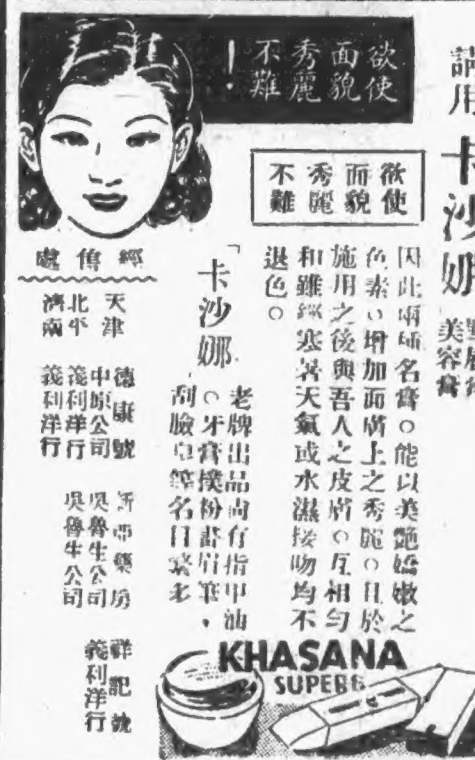 欲使
面貌
秀麗
不難
！
請用卡沙娜
美容膏
欲使
面貌
秀麗
不難
因此兩種名膏。能以美艷嬌嫩之
色素。增加面膚上之秀麗。且於
施用之後與吾人之皮膚。互相勻
和雖經寒暑天氣或水濕接吻均不
退色。
「卡沙娜」
老牌出品尚有指甲油
。牙膏撲粉畫眉筆，
刮臉皂等名目繁多
經售處
天津 德康號 新都藥房 祥記號
中原公司 吳魯生公司 義利洋行
北平 義利洋行 吳魯生公司
濟南 義利洋行
KHASANA
SUPERB